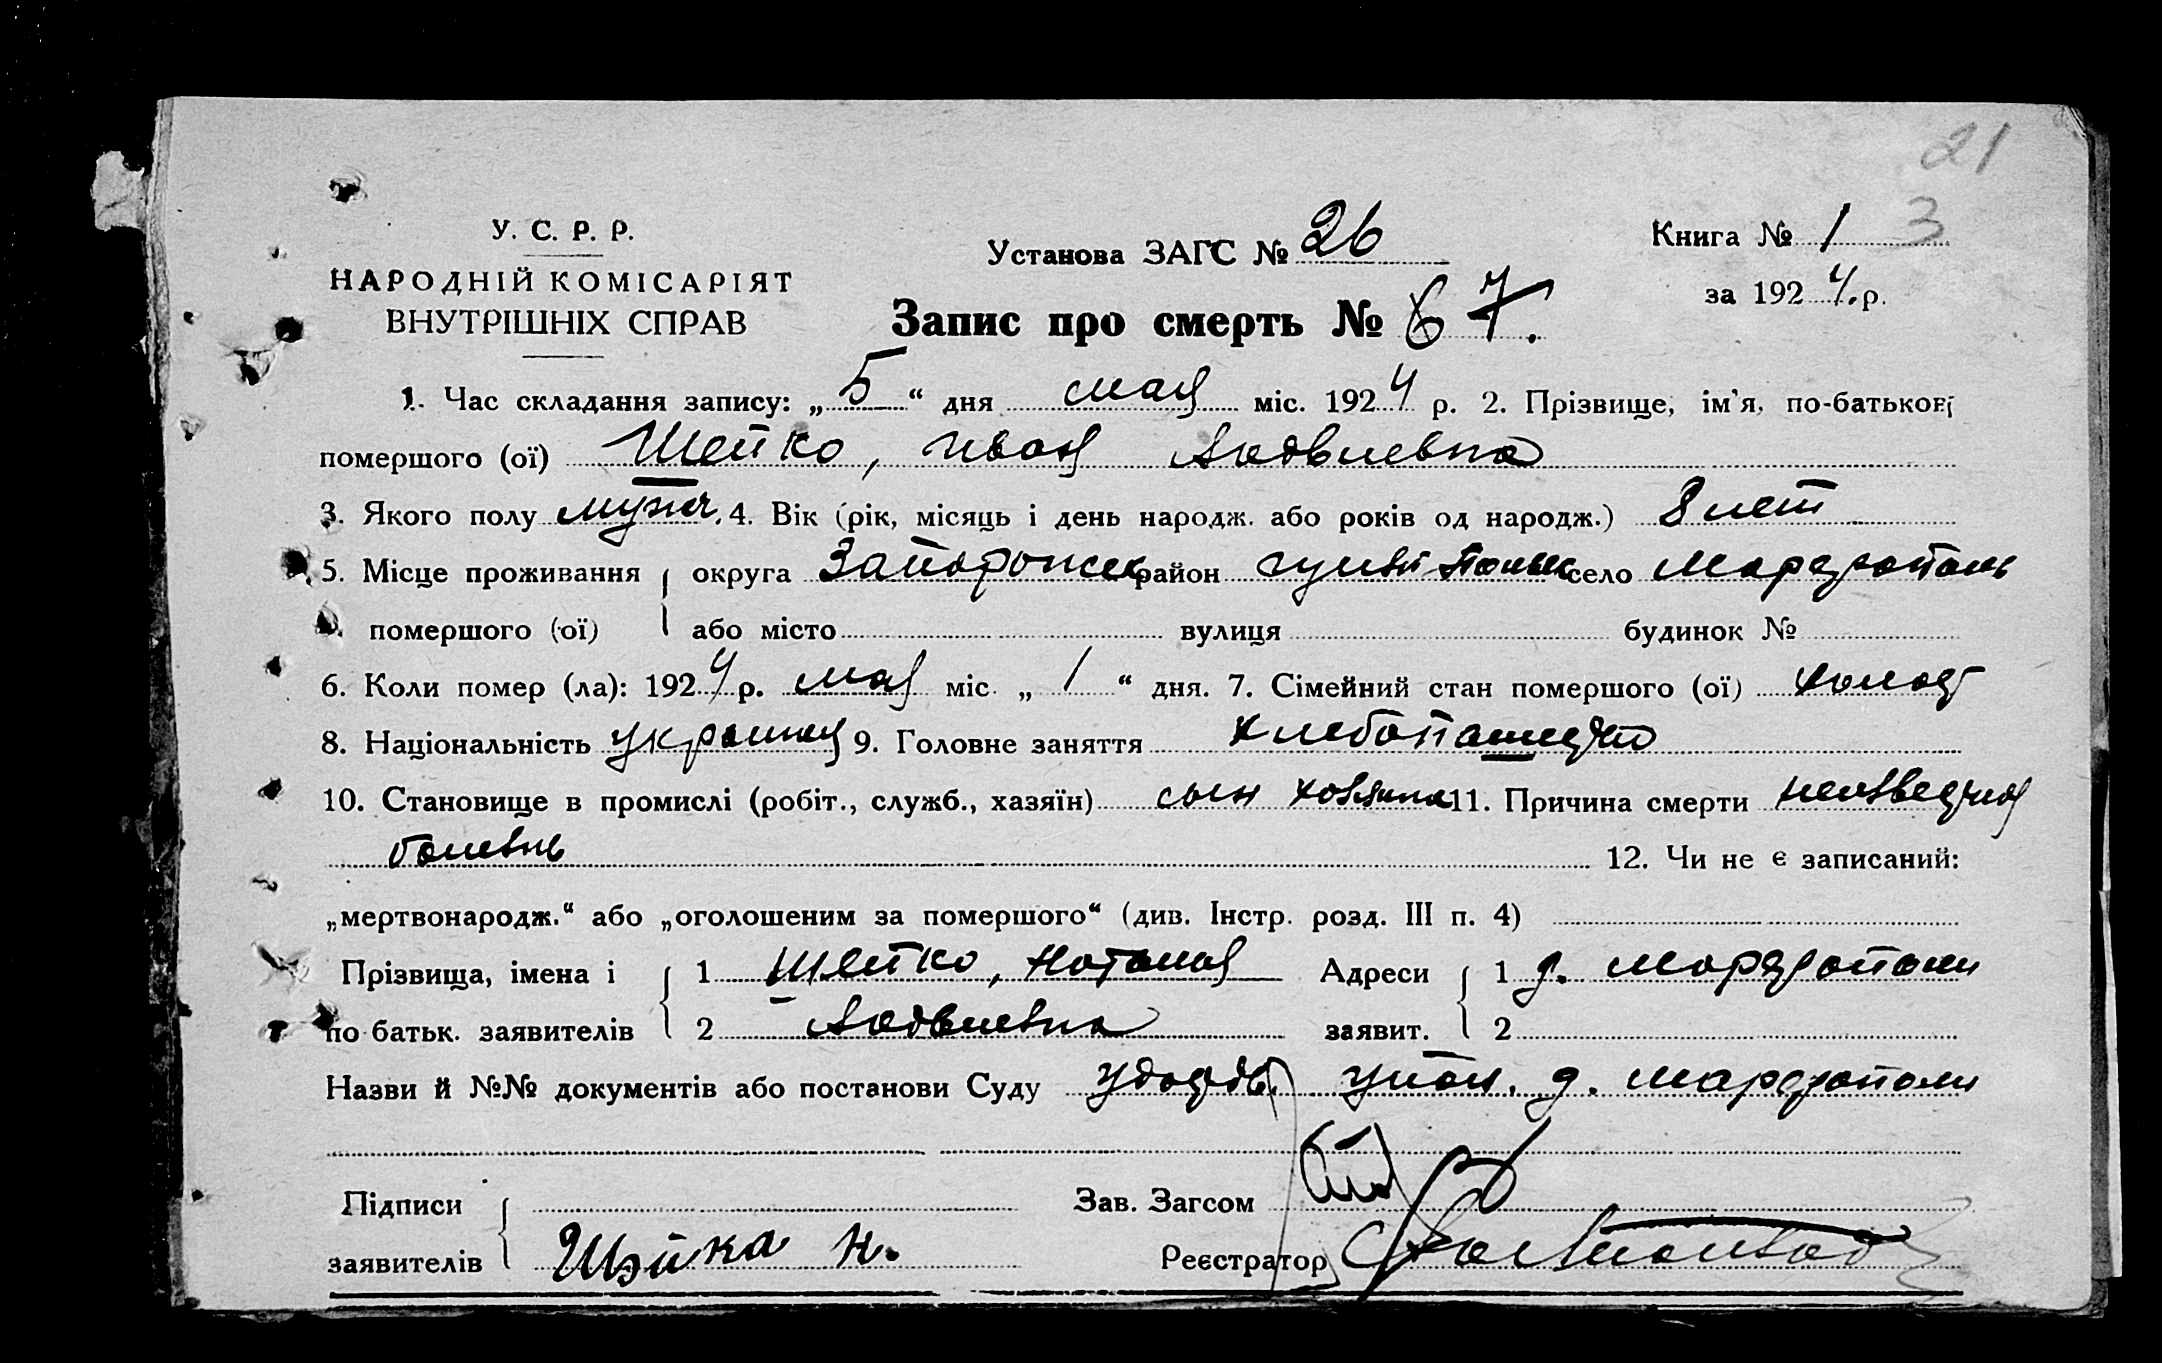 21
У. С. Р. Р.
НАРОДНІЙ КОМІСАРІЯТ
ВНУТРІШНІХ СПРАВ
Установа ЗАГС № 26
Запис про смерть № 67.
Книга № 1 3
за 1924. р.
1. Час складання запису: „5“ дня мая міс. 1924 р. 2. Прізвище, ім'я, по-батькові
помершого (ої) Шейко, Иван
3. Якого полу мужч. 4. Вік (рік, місяць і день народж. або років од народж.) 8 лет
5. Місце проживання округа Запорожск район Гуляй-Польск село
помершого (ої) або місто вулиця будинок №
6. Коли помер (ла): 1924 р. мая міс. „1“ дня. 7. Сімейний стан помершого (ої) холост
8. Національність украинец 9. Головне заняття хлебопашество
10. Становище в промислі (робіт., служб., хазяїн) сын хозяина 11. Причина смерти неизвестная
болезнь 12. Чи не є записаний:
„мертвонародж.“ або „оголошеним за помершого“ (див. Інстр. розд. III п. 4)
Прізвища, імена і 1 Шейко, Наталия Адреси 1 д.
по батьк. заявителів 2 заявит. 2
Назви й №№ документів або постанови Суду удостов. упол. д.
Підписи Зав. Загсом
заявителів Шэйка Н. Реєстратор